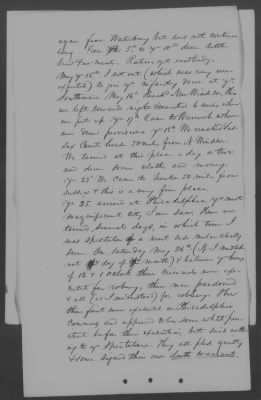 again from Waterbury but did not continue
long. From ye 5th to ye 10th drew bettr
bread &
May ye 15th I set out (which was very un-
expected) to join ye infantry down at ye
Southward May 16th Nw Windsor this
we left toward night & marched 6 miles when
we put up Ye 17th Came to Warwick where
we drew provisions ye 18th We reached
Sx Court house 50 miles from N Windsor
We tarried at this place a day or two
and drew some cloths and money.
Ye 23d We Came to 50 miles from
Sussex & this is a very fine place
Ye 25 arrived at Philadelphia, ye most
magnificent city I ever saw. Here we
tarried several days, in which time I
was spectator of a most sad melancholly
Seen. On Saturday May 26th (if I mistake
not ye day of ye month) & between ye hours
of 12 & 1 Oclock three criminals were exe-
cuted for robing, three more pardoned
& all (as I understand) for robbery. The
three first were executed in Philadelphia
Commons and appeared to be some what pen-
itent before their execution, but said noth-
ing to ye Spectators. They all pled guilty
& some signed their own death warrant.